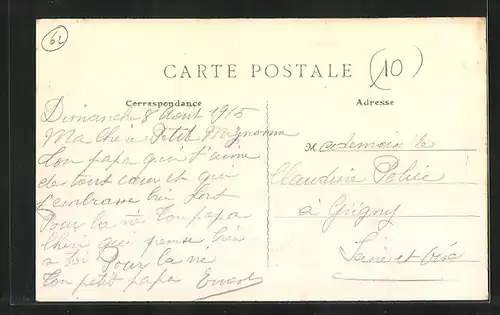 62
CARTE POSTALE
(10)
Correspondance
Adresse
Dimanche 8 Aout 1915
Ma chère Petite Mignonne
ton papa qui t'aime
de tout cœur et qui
t'embrasse bien fort
Pour la vie Ton papa
cheri qui pense bien
a toi Pour la vie
Ton petit papa
Mademoiselle
Claudine
à Grigny
Seine et Oise